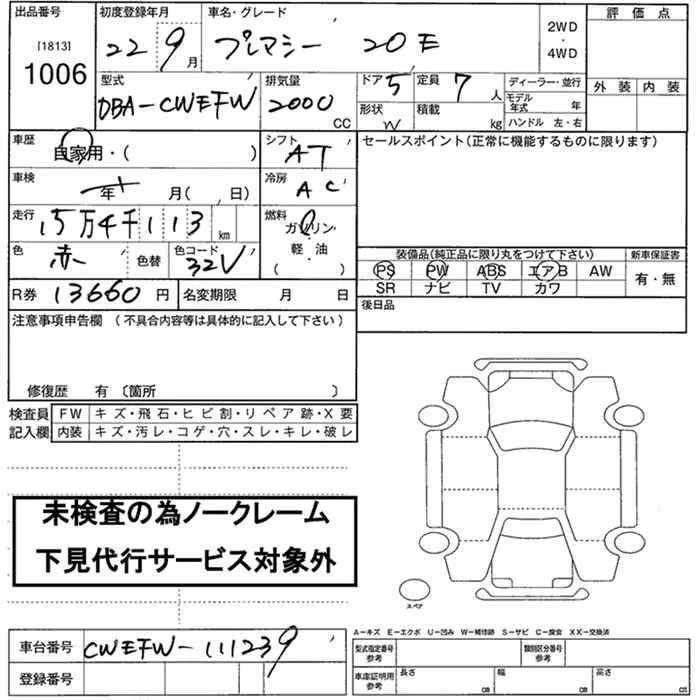 出品番号 初度登録年月 車名・グレード 評価点
[1813] 22 9月 プレマシー 20E 2WD・4WD
1006 型式 排気量 ドア 5 定員 7人 ディーラー・並行 外装 内装
DBA-CWEFW 2000CC 形状 W 積載 kg モデル年式 年
ハンドル 左・右
車歴 自家用・( ) シフト AT セールスポイント(正常に機能するものに限ります)
車検 年 月( 、日) 冷房 AC
走行 15万4千113km 燃料 ガソリン・軽油( )
色 赤 色替 色コード 32V 装備品(純正品に限り丸をつけて下さい) 新車保証書
PS PW ABS エアB AW 有・無
R券 13660円 名変期限 月 日 SR ナビ TV カワ
注意事項申告欄 (不具合内容等は具体的に記入して下さい) 後日品
修復歴 有〔箇所 〕
検査員 FW キズ・飛石・ヒビ割・リペア跡・X要
記入欄 内装 キズ・汚レ・コゲ・穴・スレ・キレ・破レ
未検査の為ノークレーム
下見代行サービス対象外
スペア
A-キズ E-エクボ U-凹み W-補修跡 S-サビ C-腐食 XX-交換済
車台番号 CWEFW-111239 型式指定番号 参考 類別区分番号 参考
登録番号 車庫証明用 参考 長さ cm 幅 cm 高さ cm